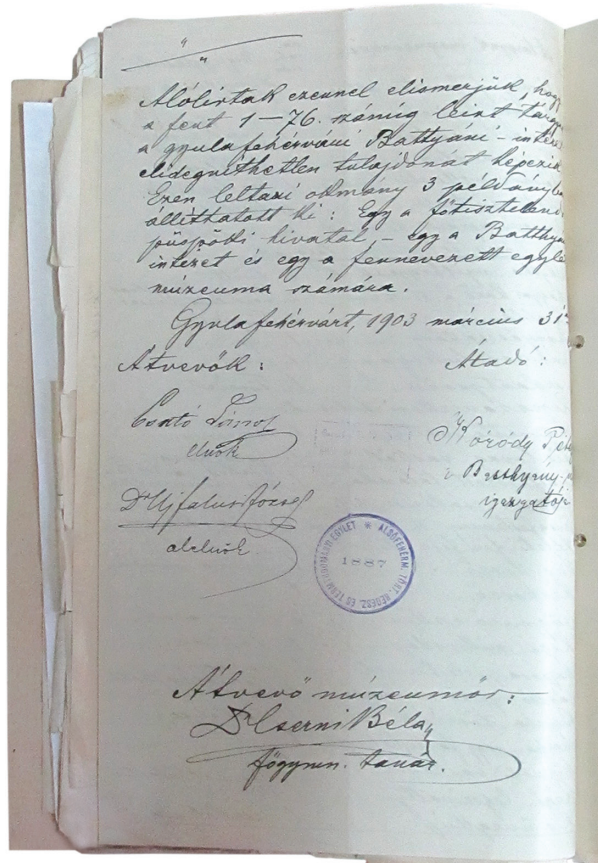 Alólirtak ezennel elismerjük, hogy
a fent 1–76. számig leirt tárgy
a gyulafehérvári Battyáni-intéze
elidegnithetlen tulajdonát képezik
Ezen leltári okmány 3 példányba
állíttatott ki: Egy a főtisztelend
püspöki hivatal, – egy a Batthyá
intézet és egy a fennevezett egyle
múzeuma számára.
Gyulafehérvárt, 1903 március 31
Átvevők:
Átadó:
Cserni
elnök
Kóródy Pét
a Batthyány-
igazgatój
Dr Ujfalusi József
alelnök
ALSÓFEHÉRM. TÖRT. RÉGÉSZ. ÉS TERM. TUDOMÁNYI EGYLET
1887
Átvevő múzeumőr:
Dr Cserni Béla
főgymn. tanár.